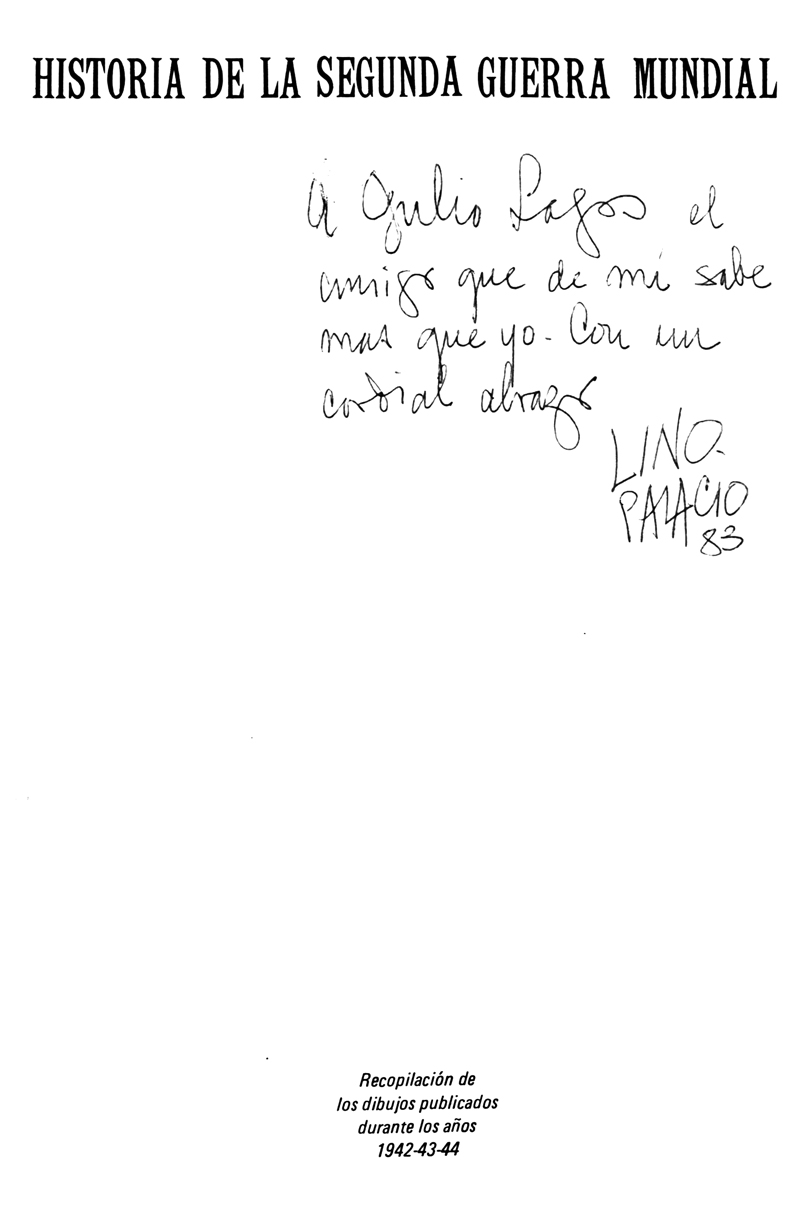 HISTORIA DE LA SEGUNDA GUERRA MUNDIAL
A Julio Lagos el
amigo que de mí sabe
mas que yo. Con un
cordial abrazo
LINO.
PALACIO
83
Recopilación de
los dibujos publicados
durante los años
1942-43-44